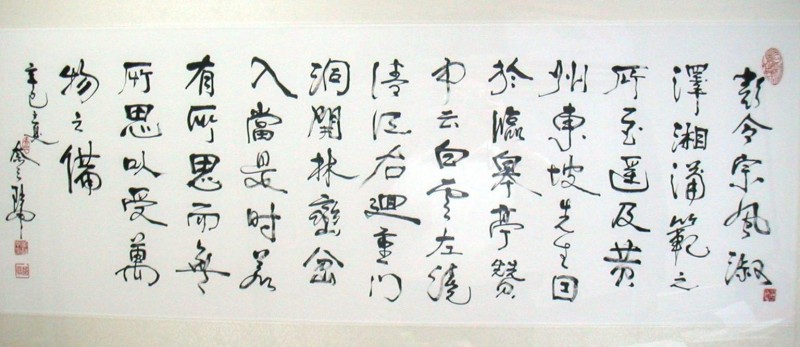 彭令宗風淑
澤湘瀟範之
所至遥及黄
州東坡先生因
於臨皋亭贊
中云白雲左繞
清江右迴重门
洞開林巒坌
入當是時若
有所思而無
所思以受萬
物之備
辛巳之夏